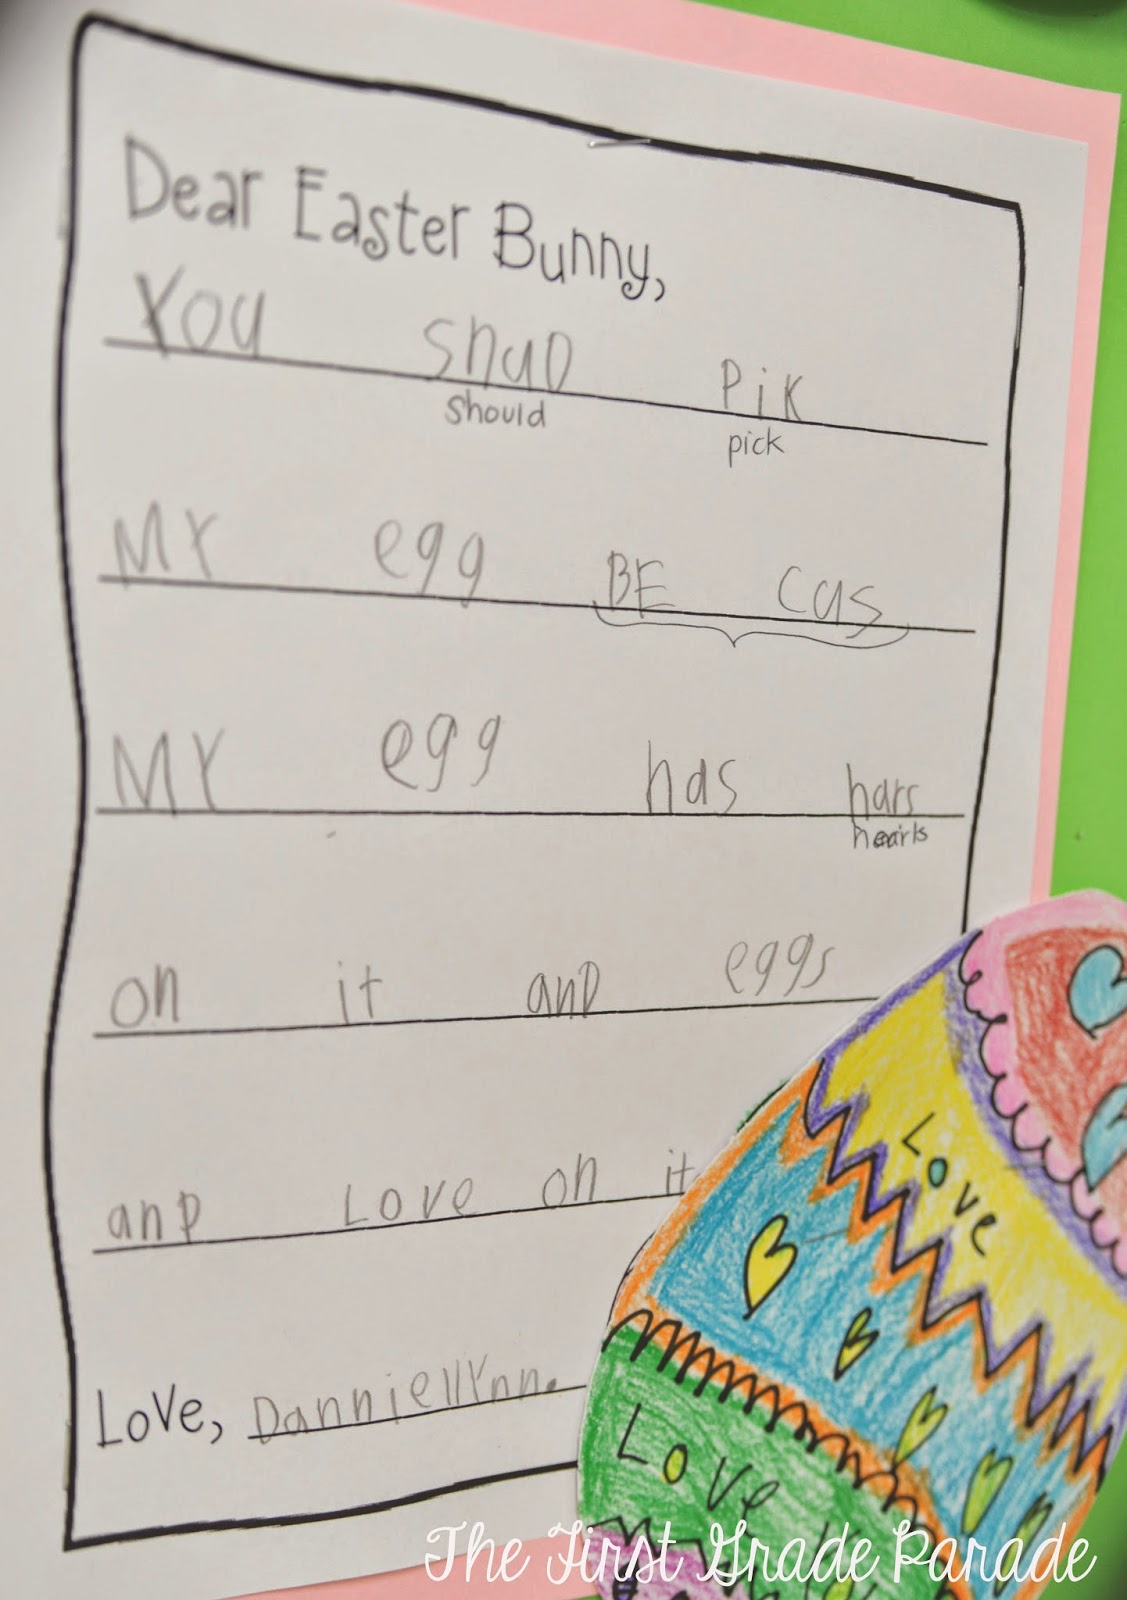 Dear Easter Bunny,
You shuD Pik
should pick
MY egg BE cus
MY egg has hars
hearts
on it anD eggs
anD Love on it
Love, Danniellynn.
Love
Love
The First Grade Parade